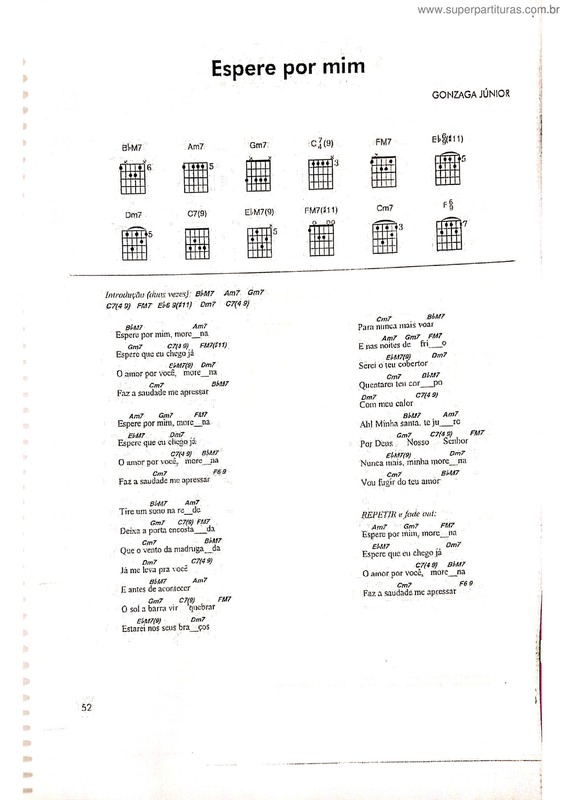 www.superpartituras.com.br
Espere por mim
GONZAGA JÚNIOR
B♭M7 Am7 Gm7 C 7/4 (9) FM7 E♭6/9(♯11)
6 5 3 5
Dm7 C7(9) E♭M7(9) FM7(♯11) Cm7 F 6/9
5 5 3 7
Introdução (duas vezes): B♭M7 Am7 Gm7
C7(4 9) FM7 E♭6 9(♯11) Dm7 C7(4 9)
B♭M7 Am7
Espere por mim, more__na
Gm7 C7(4 9) FM7(♯11)
Espere que eu chego já
E♭M7(9) Dm7
O amor por você, more__na
Cm7 B♭M7
Faz a saudade me apressar
Am7 Gm7 FM7
Espere por mim, more__na
E♭M7 Dm7
Espere que eu chego já
C7(4 9) B♭M7
O amor por você, more__na
Cm7 F6 9
Faz a saudade me apressar
B♭M7 Am7
Tire um sono na re__de
Gm7 C7(9) FM7
Deixa a porta encosta__da
Cm7 B♭M7
Que o vento da madruga__da
Dm7 C7(4 9)
Já me leva pra você
B♭M7 Am7
E antes de acontecer
Gm7 C7(9) FM7
O sol a barra vir quebrar
E♭M7(9) Dm7
Estarei nos seus bra__ços
Cm7 B♭M7
Para nunca mais voar
Am7 Gm7 FM7
E nas noites de fri___o
E♭M7(9) Dm7
Serei o teu cobertor
Cm7 B♭M7
Quentarei teu cor___po
Dm7 C7(4 9)
Com meu calor
B♭M7 Am7
Ah! Minha santa, te ju___ro
Gm7 C7(4 9) FM7
Por Deus Nosso Senhor
E♭M7(9) Dm7
Nunca mais, minha more__na
Cm7 B♭M7
Vou fugir do teu amor
REPETIR e fade out:
Am7 Gm7 FM7
Espere por mim, more__na
E♭M7 Dm7
Espere que eu chego já
C7(4 9) B♭M7
O amor por você, more__na
Cm7 F6 9
Faz a saudade me apressar
52